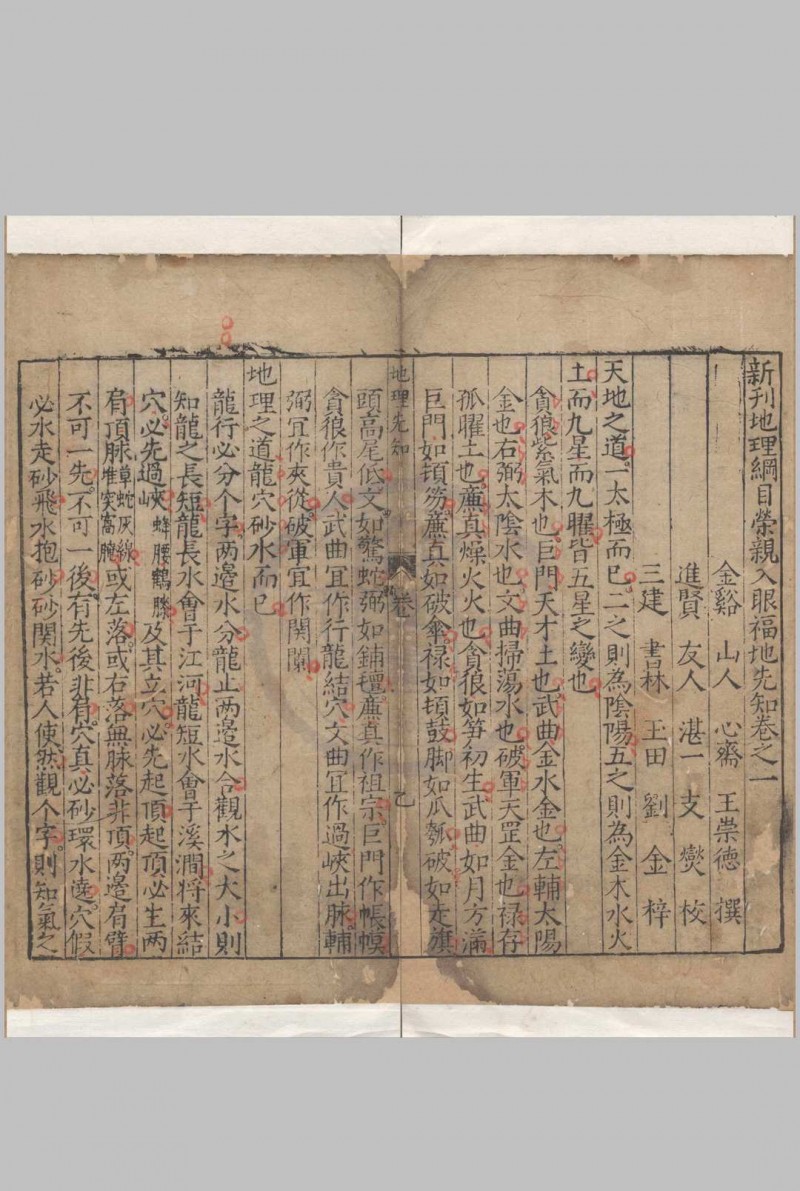 新刊地理綱目榮親入眼福地先知卷之一
金谿 山人 心齋 王崇德 撰
進賢 友人 湛一 支 爕 校
三建 書林 王田 劉 金 梓
天地之道一太極而已二之則為陰陽五之則為金木水火
土而九星而九曜皆五星之變也
貪狼紫氣木也巨門天才土也武曲金水金也左輔太陽
金也右弼太陰水也文曲掃蕩水也破軍天罡金也禄存
孤曜土也廉真燥火火也貪狼如笋初生武曲如月方滿
巨門如頓笏廉真如破傘禄如頓鼓脚如瓜瓠破如走旗
地理先知 卷一 乙
頭高尾低文如驚蛇弼如鋪氊廉真作祖宗巨門作帳幙
貪狼作貴人武曲宜作行龍結穴文曲宜作過峽出脉輔
弼宜作夾從破軍宜作関闌
地理之道龍穴砂水而已
龍行必分个字两邉水分龍止两邉水合觀水之大小則
知龍之長短龍長水會于江河龍短水會于溪澗将來結
穴必先過峽蜂腰鶴膝及其立穴必先起頂起頂必生两
肩頂脉草蛇灰線堆突窩腌或左落或右落無脉落非頂两邉有臂
不可一先不可一後有先後非有穴真必砂環水遶穴假
必水走砂飛水抱砂砂関水若人使然觀个字則知氣之